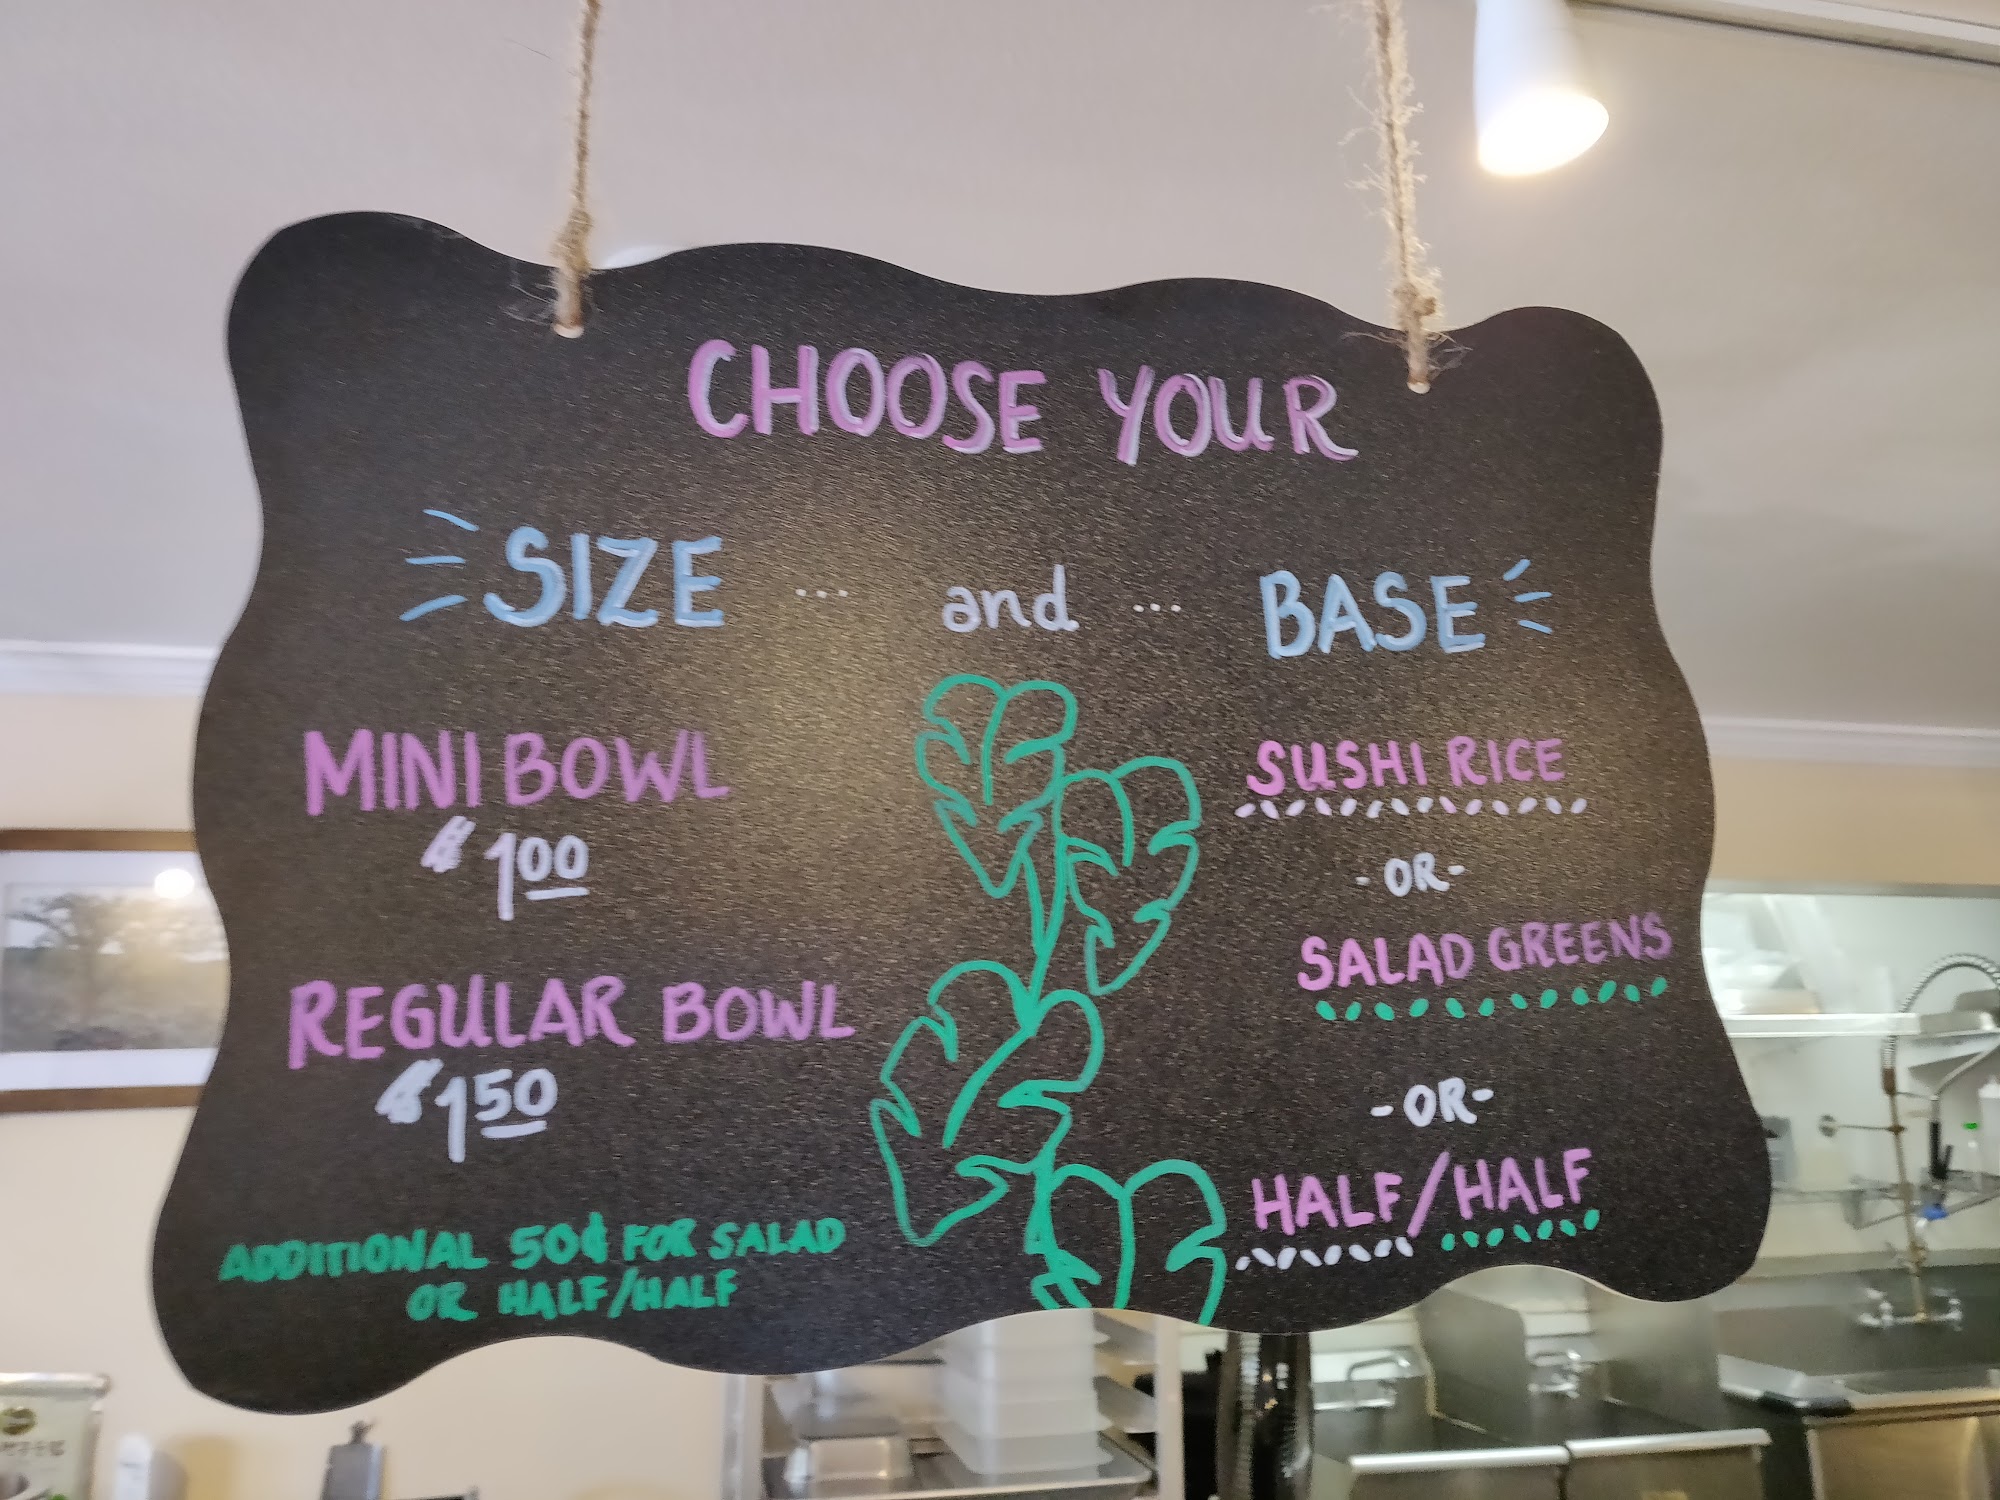 CHOOSE YOUR
SIZE ... and ... BASE
MINI BOWL
$1.00
REGULAR BOWL
$1.50
ADDITIONAL 50¢ FOR SALAD
OR HALF/HALF
SUSHI RICE
-OR-
SALAD GREENS
-OR-
HALF/HALF